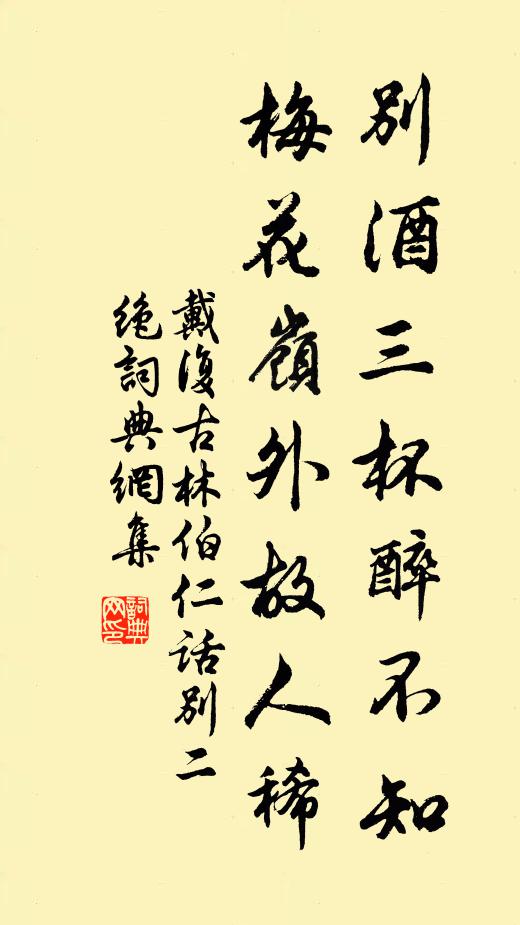 別酒三杯醉不知
梅花嶺外故人稀
戴復古林伯仁話別二
絶詞典網集
詞典
网印